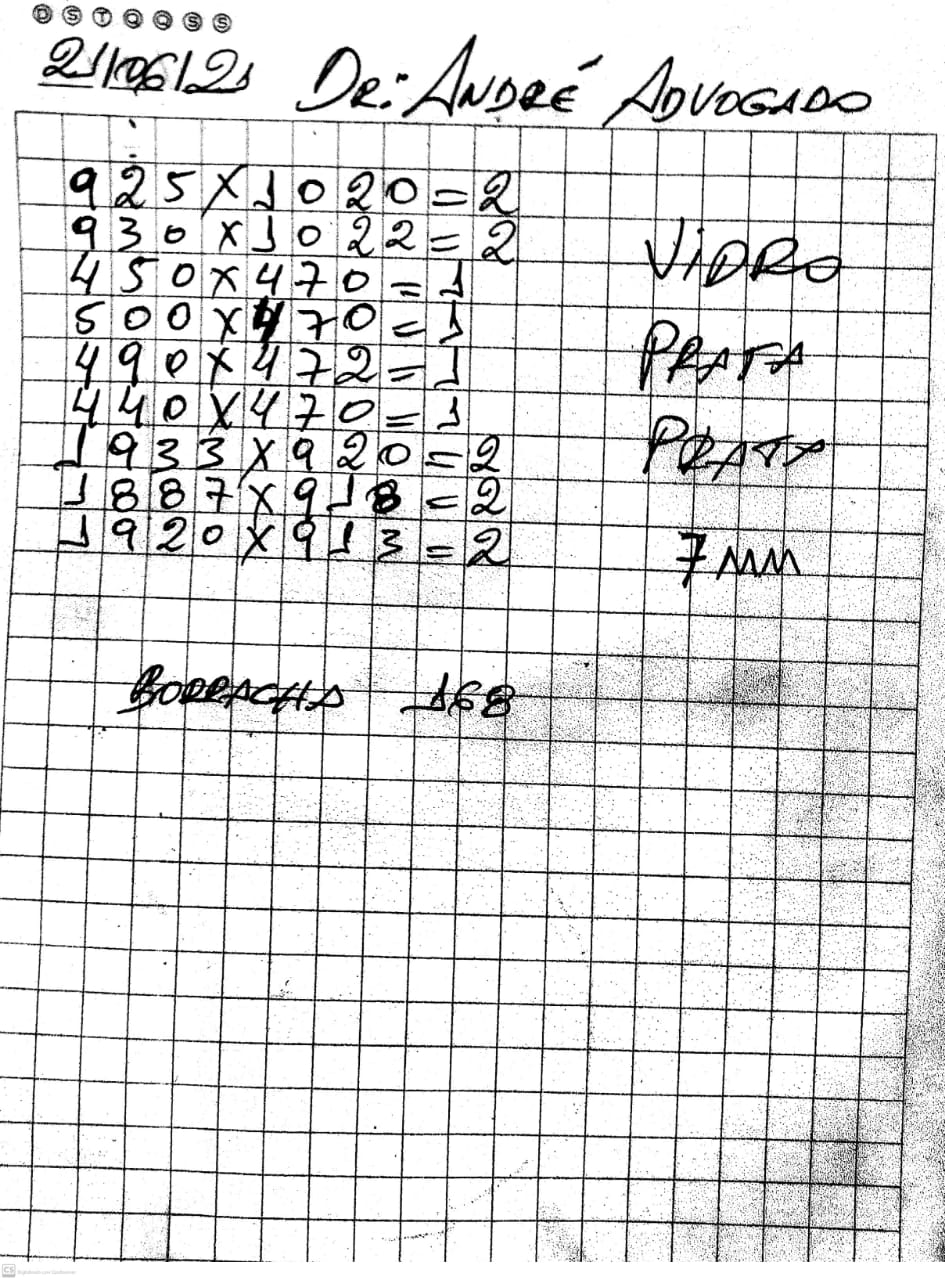 D S T Q Q S S
21/06/21 DR: ANDRÉ ADVOGADO
925 X 1020 = 2
930 X 1022 = 2
VIDRO
450 X 470 = 1
500 X 470 = 1
PRATA
490 X 472 = 1
440 X 470 = 1
PRATA
1933 X 920 = 2
1887 X 918 = 2
1920 X 913 = 2
7MM
BORRACHA 168
CS